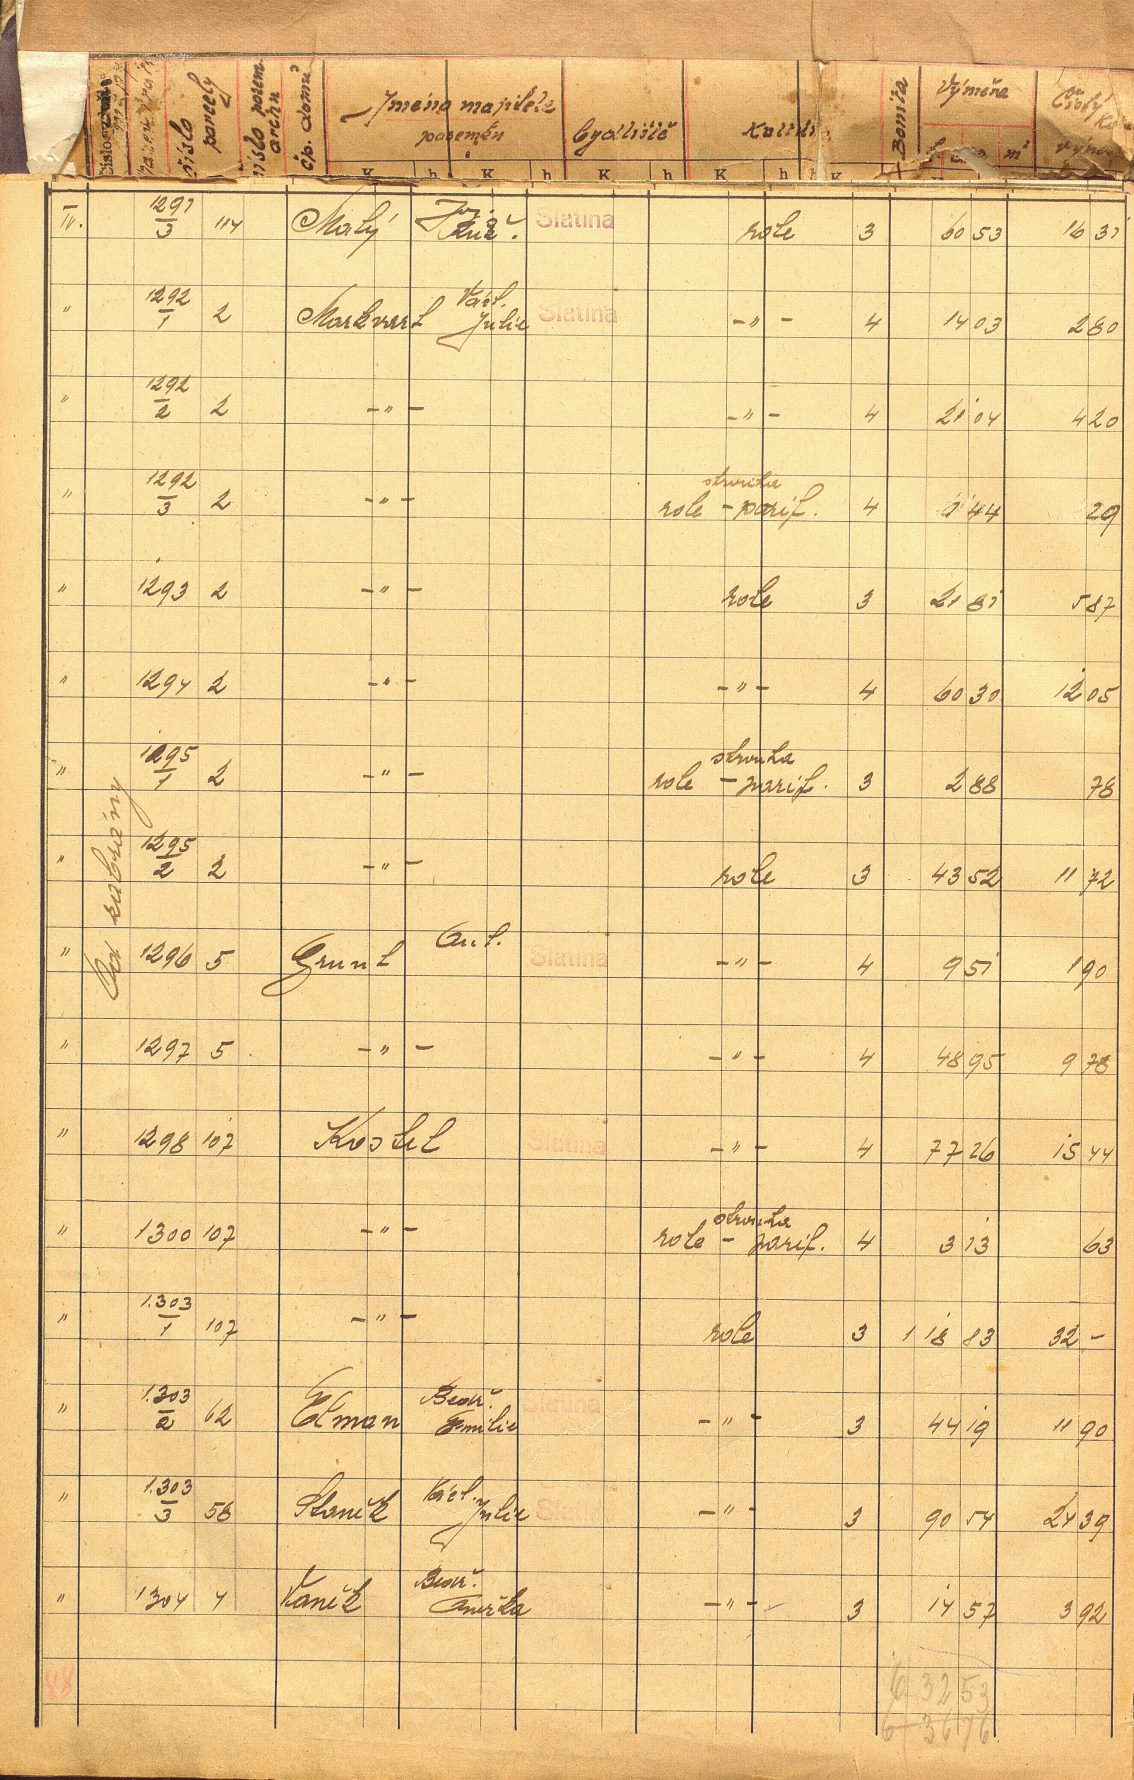 Číslo
číslo parcely
číslo pozem. archu
čp. domu
Jméno majitele pozemku
bydliště
Bonita
Výměra
Čistý
K h K h K h K h h K
m²
IV. 1291/3 114 Malý Jos. Slatina role 3 60 53 16 31
" 1292/1 2 Markvart Václ. Julie Slatina -"- 4 14 03 2 80
" 1292/2 2 -"- -"- 4 21 04 4 20
" 1292/3 2 -"- role - strouha parif. 4 1 44 29
" 1293 2 -"- role 3 21 81 5 87
" 1294 2 -"- -"- 4 60 30 12 05
" 1295/1 2 -"- role - strouha parif. 3 2 88 78
" 1295/2 2 -"- role 3 43 52 11 72
" 1296 5 Grunt Ant. Slatina -"- 4 9 51 1 90
" 1297 5 -"- -"- 4 48 95 9 78
" 1298 107 Kostel Slatina -"- 4 77 26 15 44
" 1300 107 -"- role - strouha parif. 4 3 13 63
" 1.303/1 107 -"- role 3 1 18 83 32 -
" 1.303/2 62 Etman Bedř. Emilie Slatina -"- 3 44 19 11 90
" 1.303/3 58 Staněk Václ. Julie Slatina -"- 3 90 54 24 39
" 1304 4 Vaněk Bedř. Anežka -"- 3 14 57 3 92
48
6 32 53
6 36 76